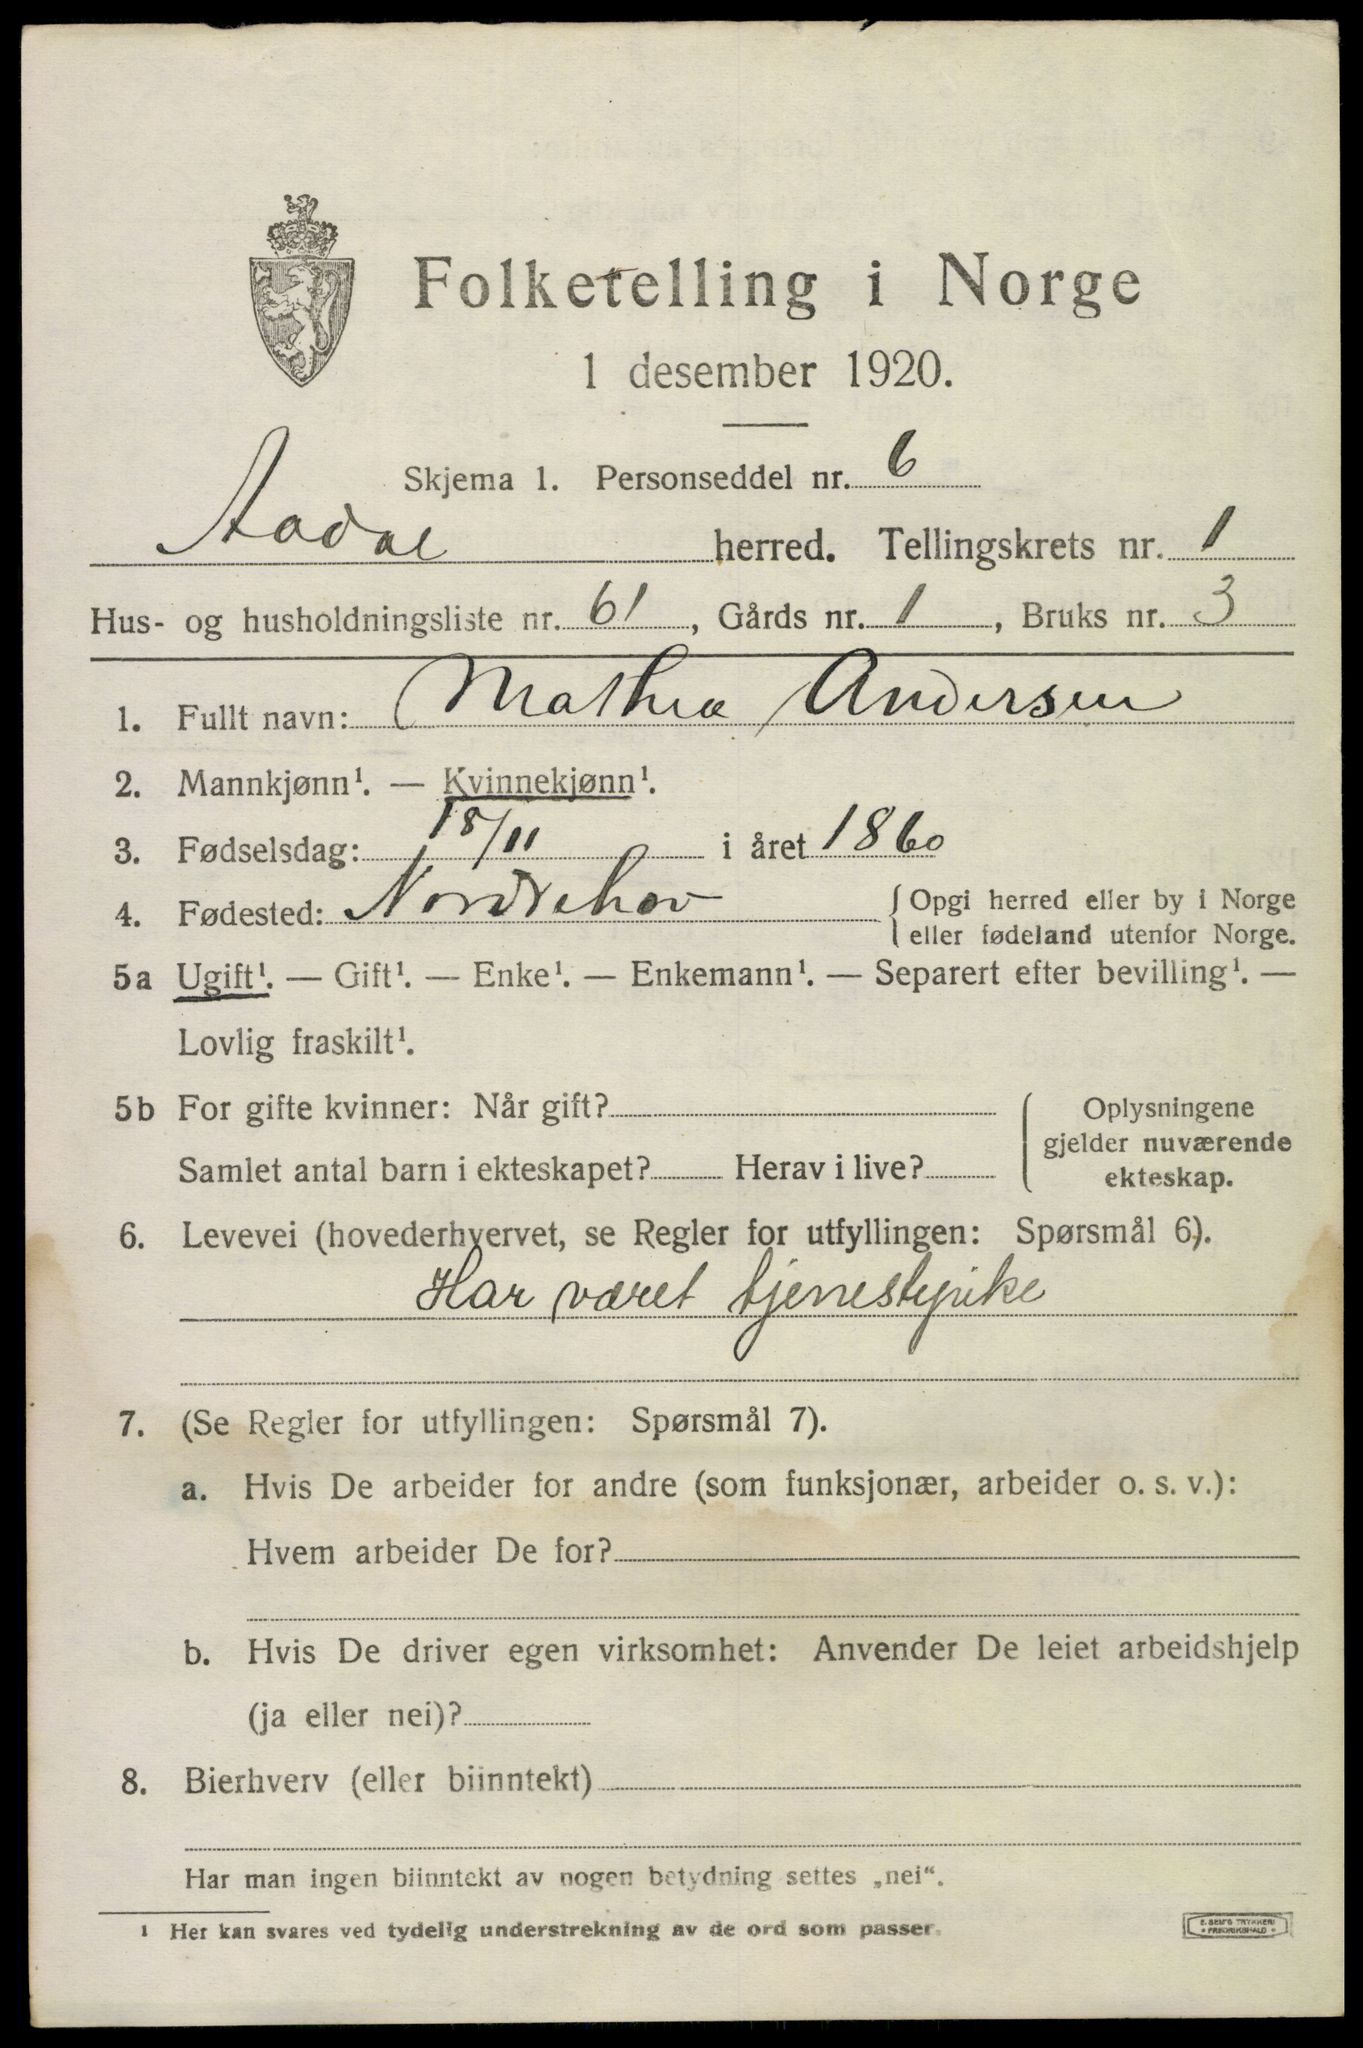 Folketelling i Norge
1 desember 1920.
Skjema 1. Personseddel nr. 6
Aadal herred. Tellingskrets nr. 1
Hus- og husholdningsliste nr. 61, Gårds nr. 1, Bruks nr. 3
1. Fullt navn: Mathea Andersen
2. Mannkjønn¹. — Kvinnekjønn¹.
3. Fødselsdag: 18/11 i året 1860
4. Fødested: Norderhov { Opgi herred eller by i Norge
eller fødeland utenfor Norge.
5a Ugift¹. — Gift¹. — Enke¹. — Enkemann¹. — Separert efter bevilling¹. —
Lovlig fraskilt¹.
5b For gifte kvinner: Når gift?
Samlet antal barn i ekteskapet? Herav i live?
Oplysningene
gjelder nuværende
ekteskap.
6. Levevei (hovederhvervet, se Regler for utfyllingen: Spørsmål 6).
Har været tjenestepike
7. (Se Regler for utfyllingen: Spørsmål 7).
a. Hvis De arbeider for andre (som funksjonær, arbeider o. s. v.):
Hvem arbeider De for?
b. Hvis De driver egen virksomhet: Anvender De leiet arbeidshjelp
(ja eller nei)?
8. Bierhverv (eller biinntekt)
Har man ingen biinntekt av nogen betydning settes „nei“.
¹ Her kan svares ved tydelig understrekning av de ord som passer.
E. SEM'S TRYKKERI
• FREDRIKSHALD •